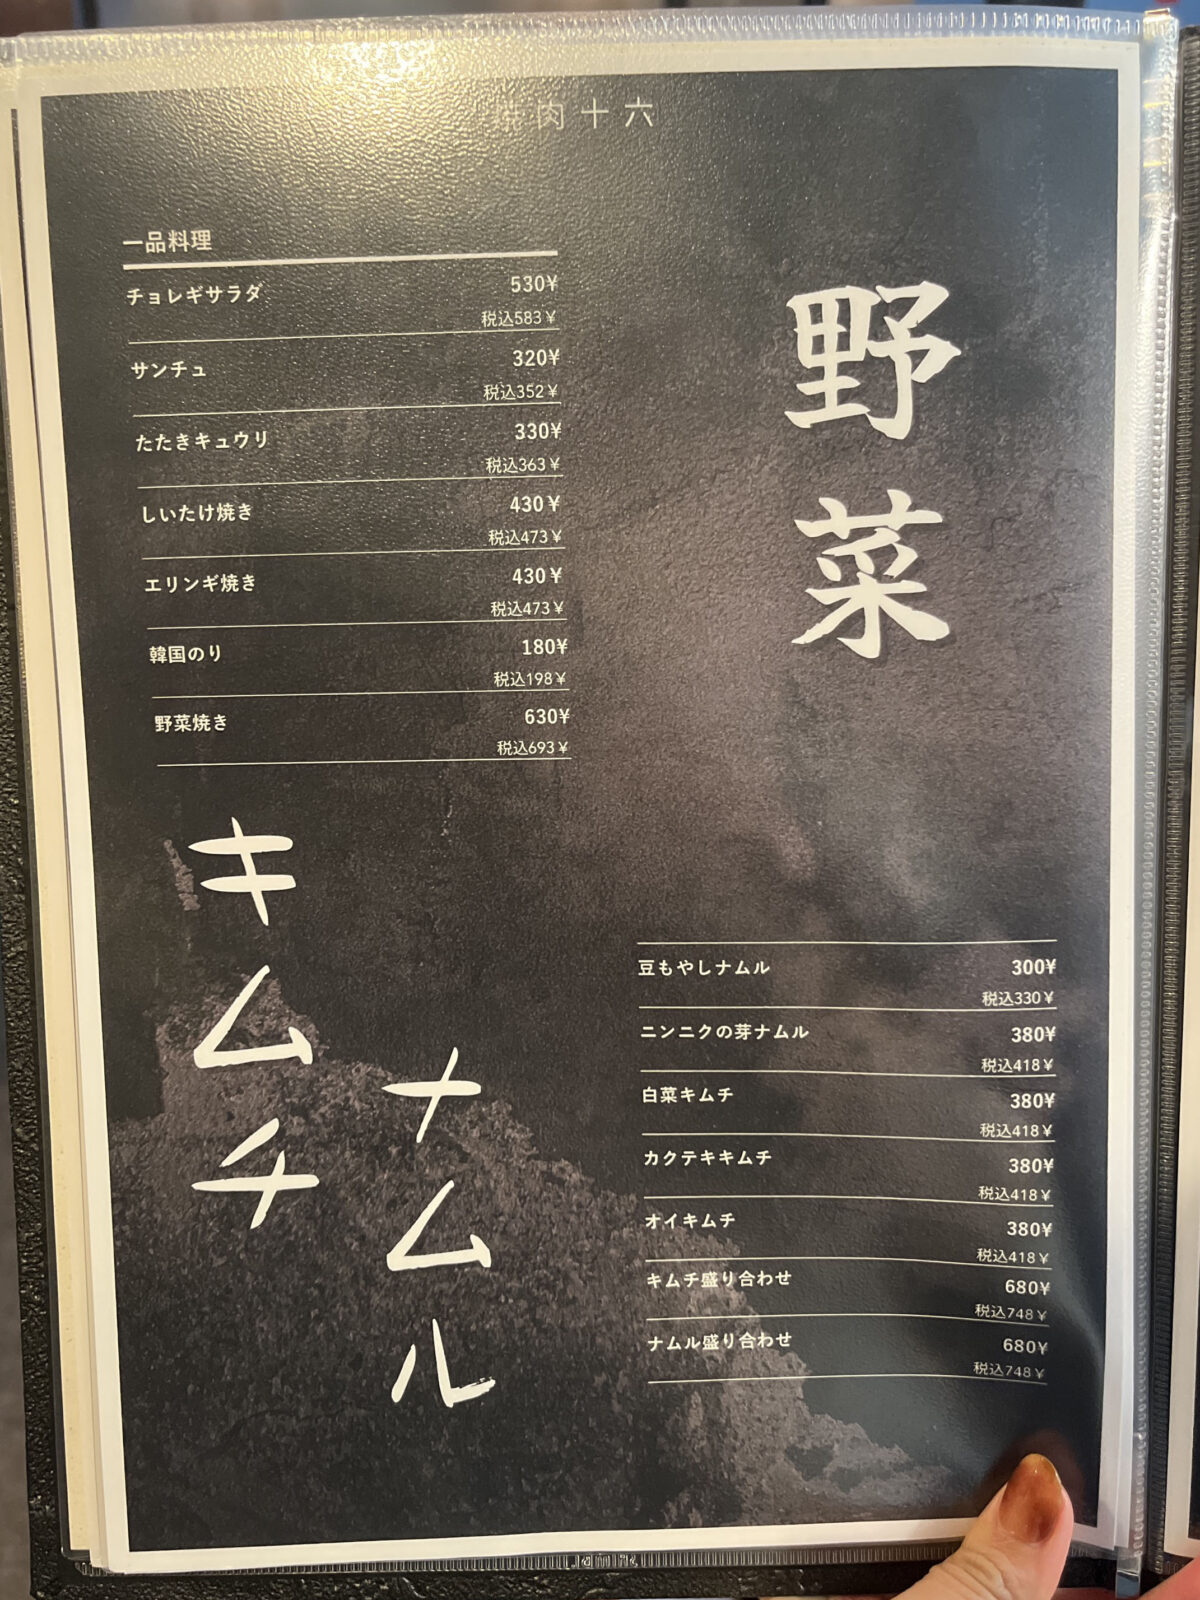 焼肉十六
一品料理
チョレギサラダ 530¥
税込583¥
サンチュ 320¥
税込352¥
たたきキュウリ 330¥
税込363¥
しいたけ焼き 430¥
税込473¥
エリンギ焼き 430¥
税込473¥
韓国のり 180¥
税込198¥
野菜焼き 630¥
税込693¥
野菜
キムチ
ナムル
豆もやしナムル 300¥
税込330¥
ニンニクの芽ナムル 380¥
税込418¥
白菜キムチ 380¥
税込418¥
カクテキキムチ 380¥
税込418¥
オイキムチ 380¥
税込418¥
キムチ盛り合わせ 680¥
税込748¥
ナムル盛り合わせ 680¥
税込748¥